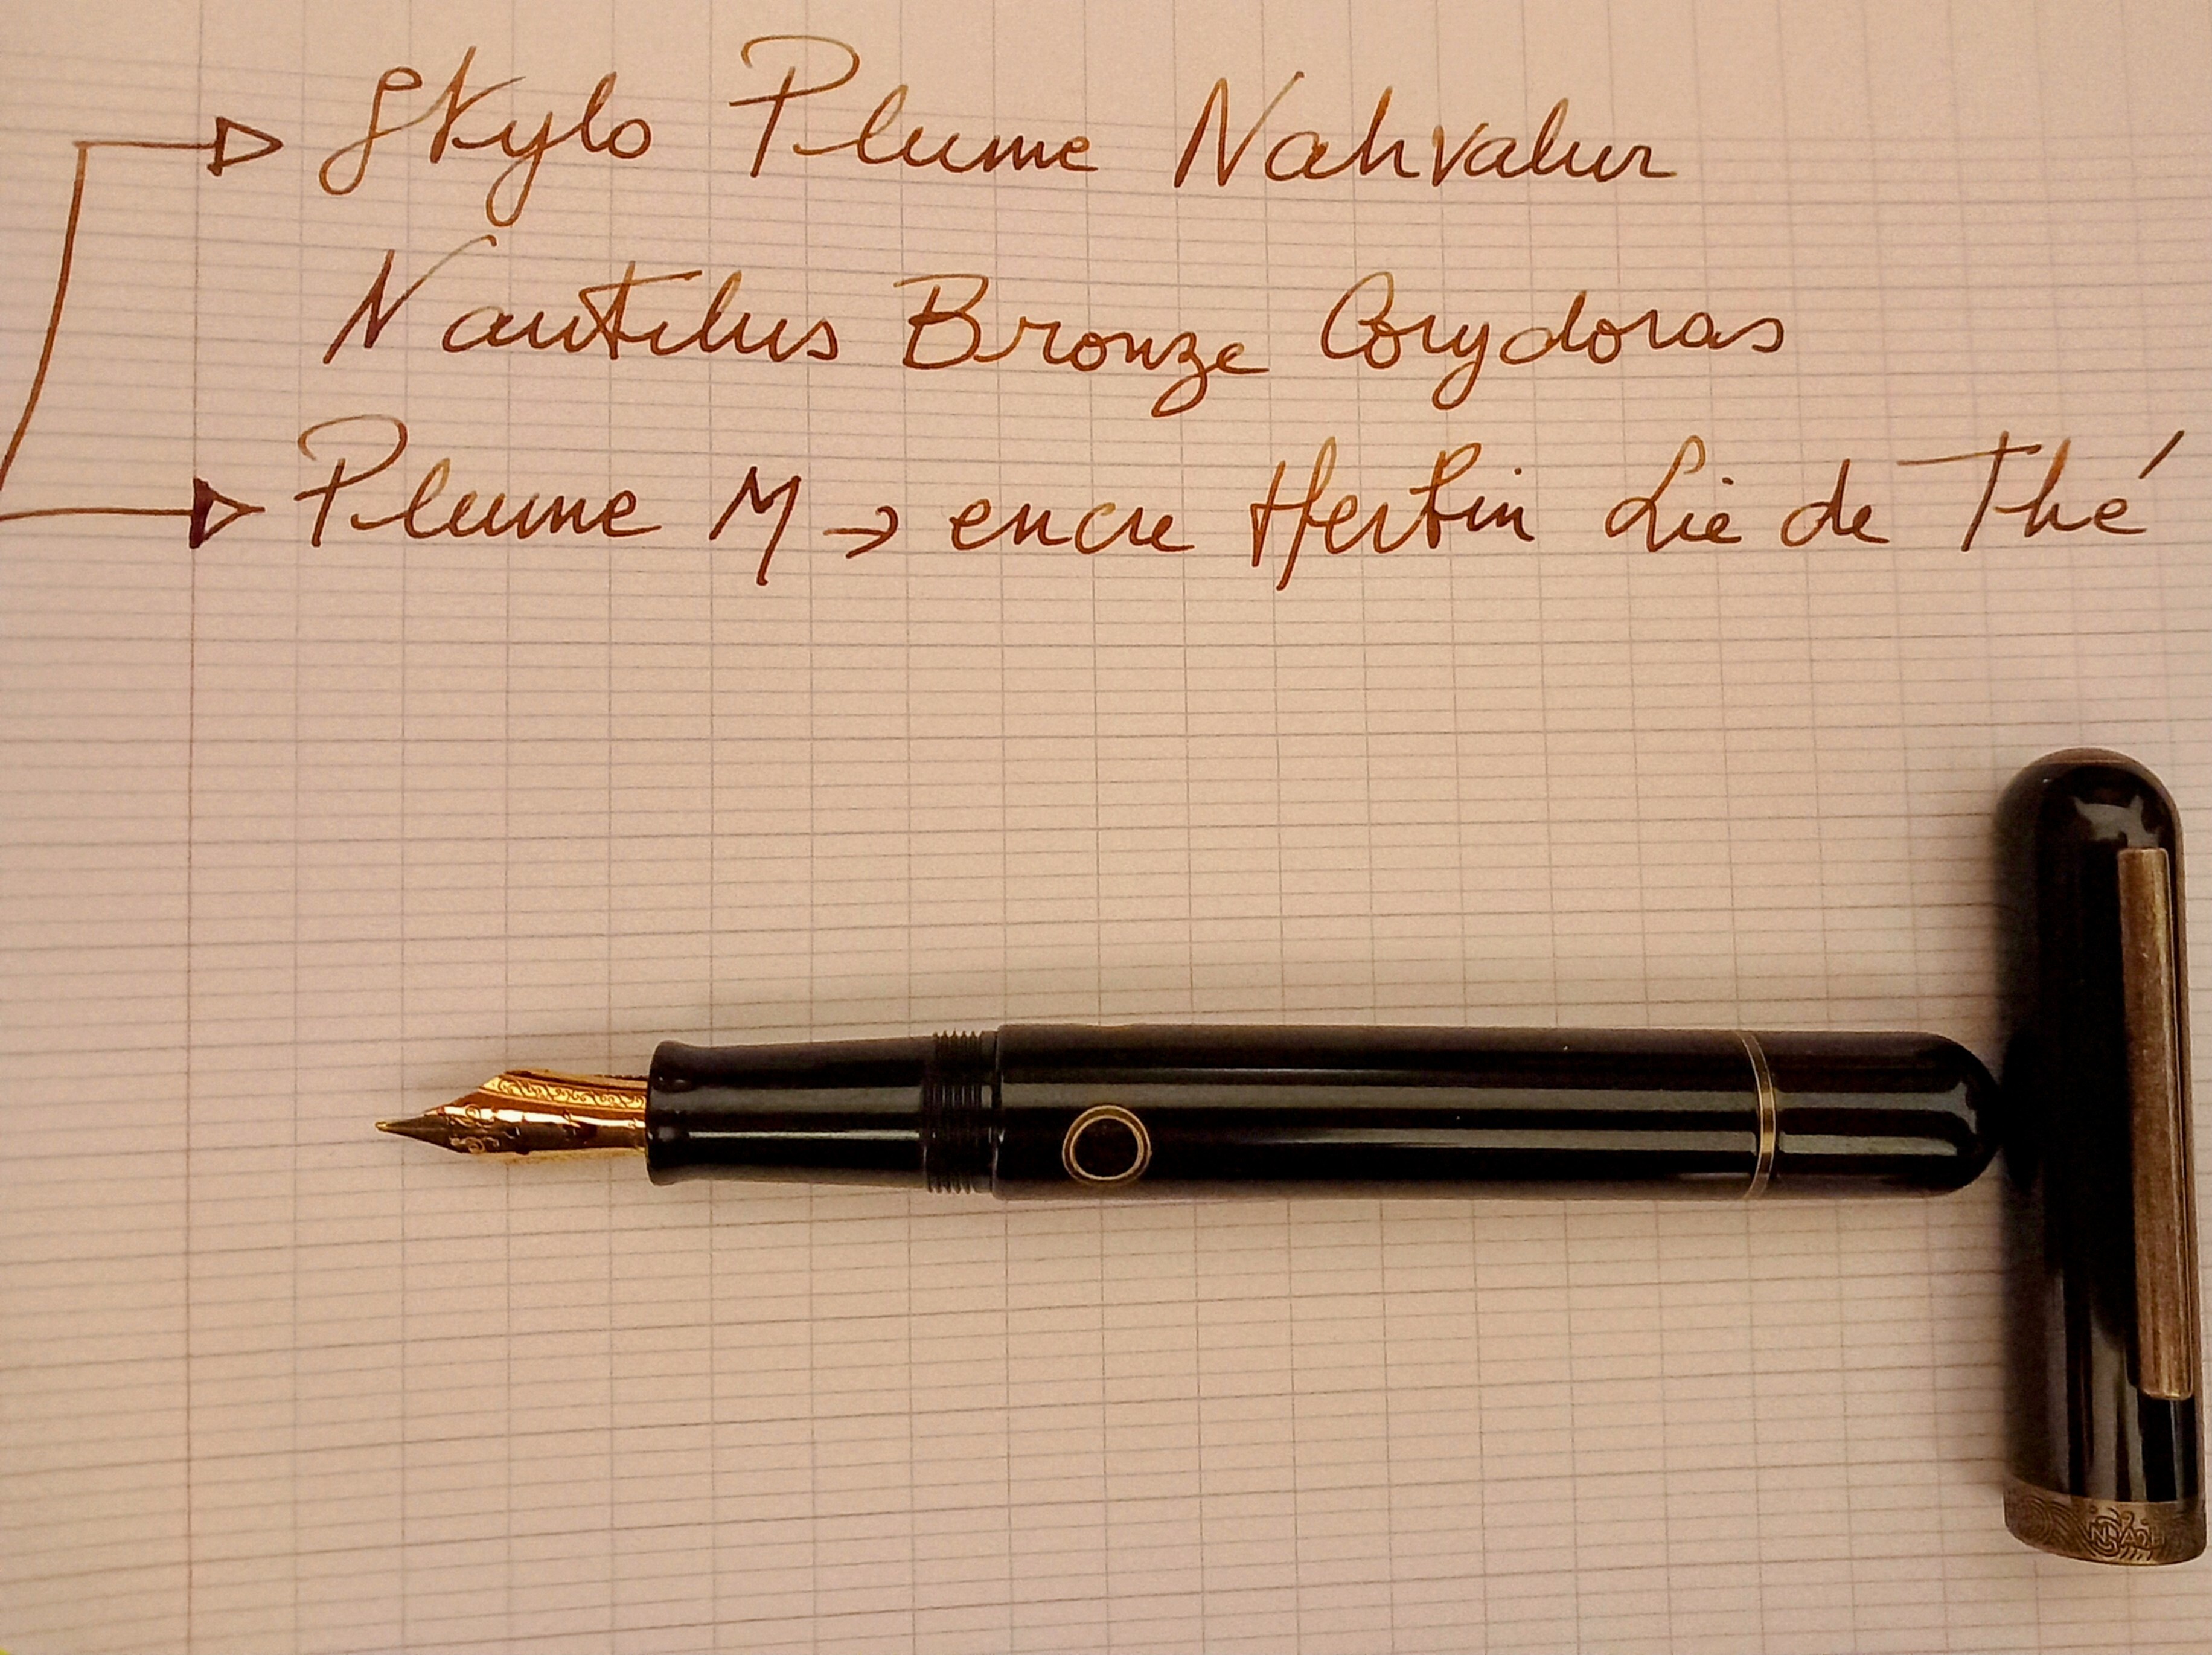 Stylo Plume Nahvalur
Nautilus Bronze Corydoras
Plume M → encre Herbin Lie de Thé